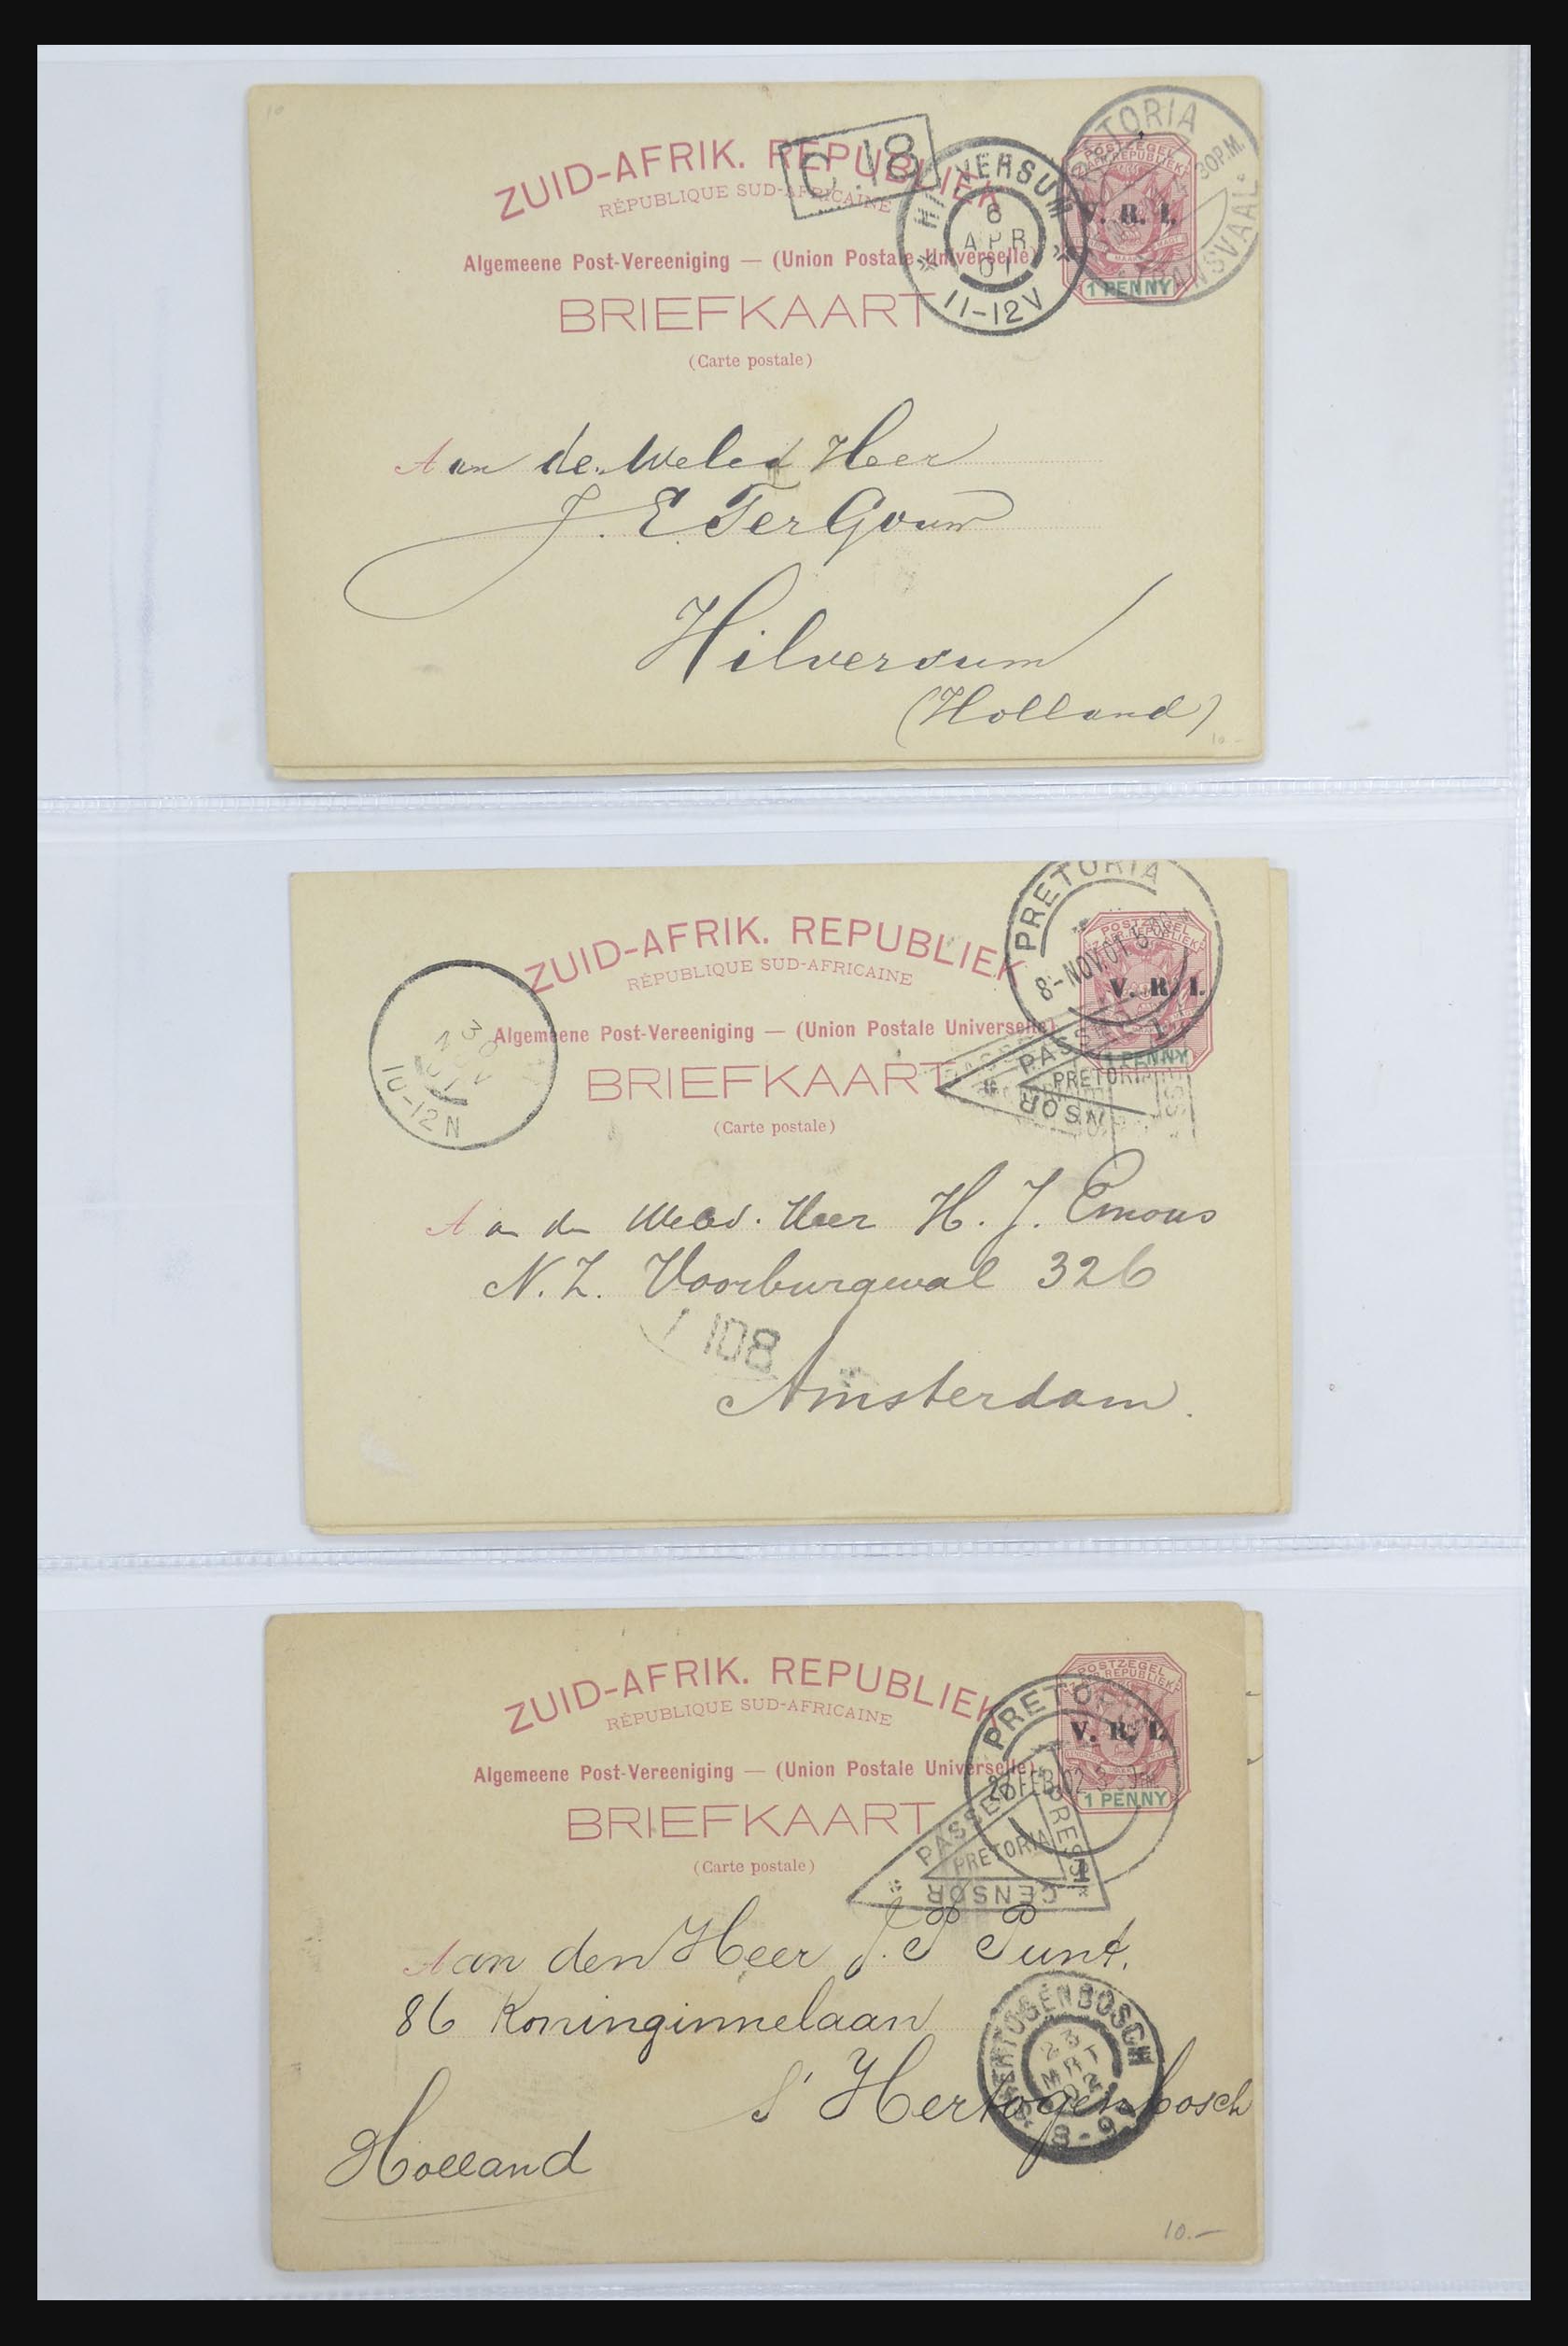 10
ZUID-AFRIK. REPUBLIEK
RÉPUBLIQUE SUD-AFRICAINE
C. 18
HILVERSUM
6
APR
01
11-12V
PRETORIA
30 P.M.
TRANSVAAL
POSTZEGEL
Z. AFR. REPUBLIEK
V. R. I.
1 PENNY
Algemeene Post-Vereeniging — (Union Postale Universelle)
BRIEFKAART
(Carte postale)
Aan de Weled Heer
J. E Ter Gouw
Hilversum
(Holland)
10 -
ZUID-AFRIK. REPUBLIEK
RÉPUBLIQUE SUD-AFRICAINE
PRETORIA
8-NOV.01
POSTZEGEL
Z. AFR. REPUBLIEK
V. R. I.
1 PENNY
30
NOV
01
10-12N
Algemeene Post-Vereeniging — (Union Postale Universelle)
BRIEFKAART
(Carte postale)
PASSED
PRETORIA
CENSOR
Aan den Weled. Heer H. J. Emous
N. Z. Voorburgwal 326
108
Amsterdam.
ZUID-AFRIK. REPUBLIEK
RÉPUBLIQUE SUD-AFRICAINE
PRETORIA
27 FEB 02
POSTZEGEL
Z. AFR. REPUBLIEK
V. R. I.
1 PENNY
Algemeene Post-Vereeniging — (Union Postale Universelle)
BRIEFKAART
(Carte postale)
PASSED
PRESS
PRETORIA
CENSOR
1
Aan den Heer J. P Punt.
86 Koninginnelaan
S' Hertogenbosch
'S HERTOGENBOSCH
23
MRT
02
8-9
Holland
10.-